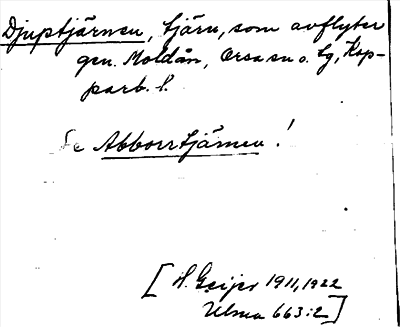 Djuptjärnen, tjärn, som avflyter
gen. Moldån, Orsa sn o. tg, Kop-
parb. l.
Se Abborrtjärnen!
[H. Geijer 1911, 1922
Ulma 663:2]